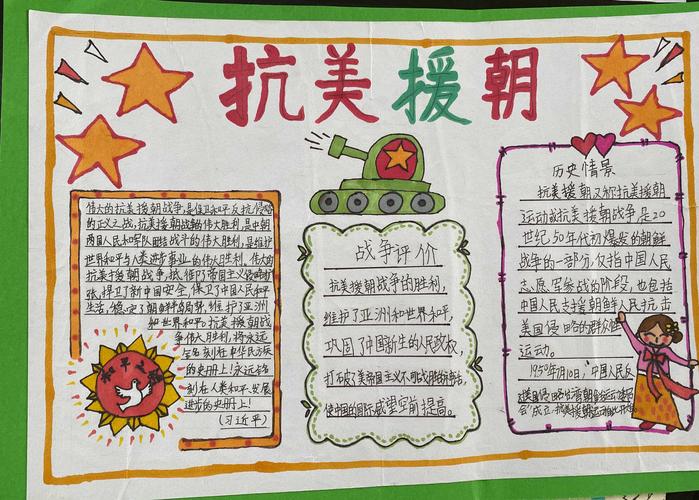 抗美援朝
伟大的抗美援朝战争,是保卫和平反抗侵略
的正义之战,抗美援朝战争的伟大胜利,是中朝
两国人民和军队团结战斗的伟大胜利,是维护
世界和平与人类进步事业的伟大胜利。伟大的
抗美援朝战争,抵御了帝国主义侵略扩
张,捍卫了新中国安全,保卫了中国人民和平
生活,稳定了朝鲜半岛局势,维护了亚洲
和世界和平。抗美援朝战
争伟大胜利,将永远
铭刻在中华民族
的史册上!永远铭
刻在人类和平、发展
进步的史册上!
(习近平)
和平之
战争评价
抗美援朝战争的胜利,
维护了亚洲和世界和平,
巩固了中国新生的人民政权,
打破了美帝国主义不可战胜的神话,
使中国的国际威望空前提高。
历史情景
抗美援朝又称抗美援朝
运动或抗美援朝战争是20
世纪50年代初爆发的朝鲜
战争的一部分,仅指中国人民
志愿军参战的阶段,也包括
中国人民支援朝鲜人民抗击
美国侵略的群众性
运动。
1950年7月10日,中国人民反
对美国侵略
成立,抗美援朝运动